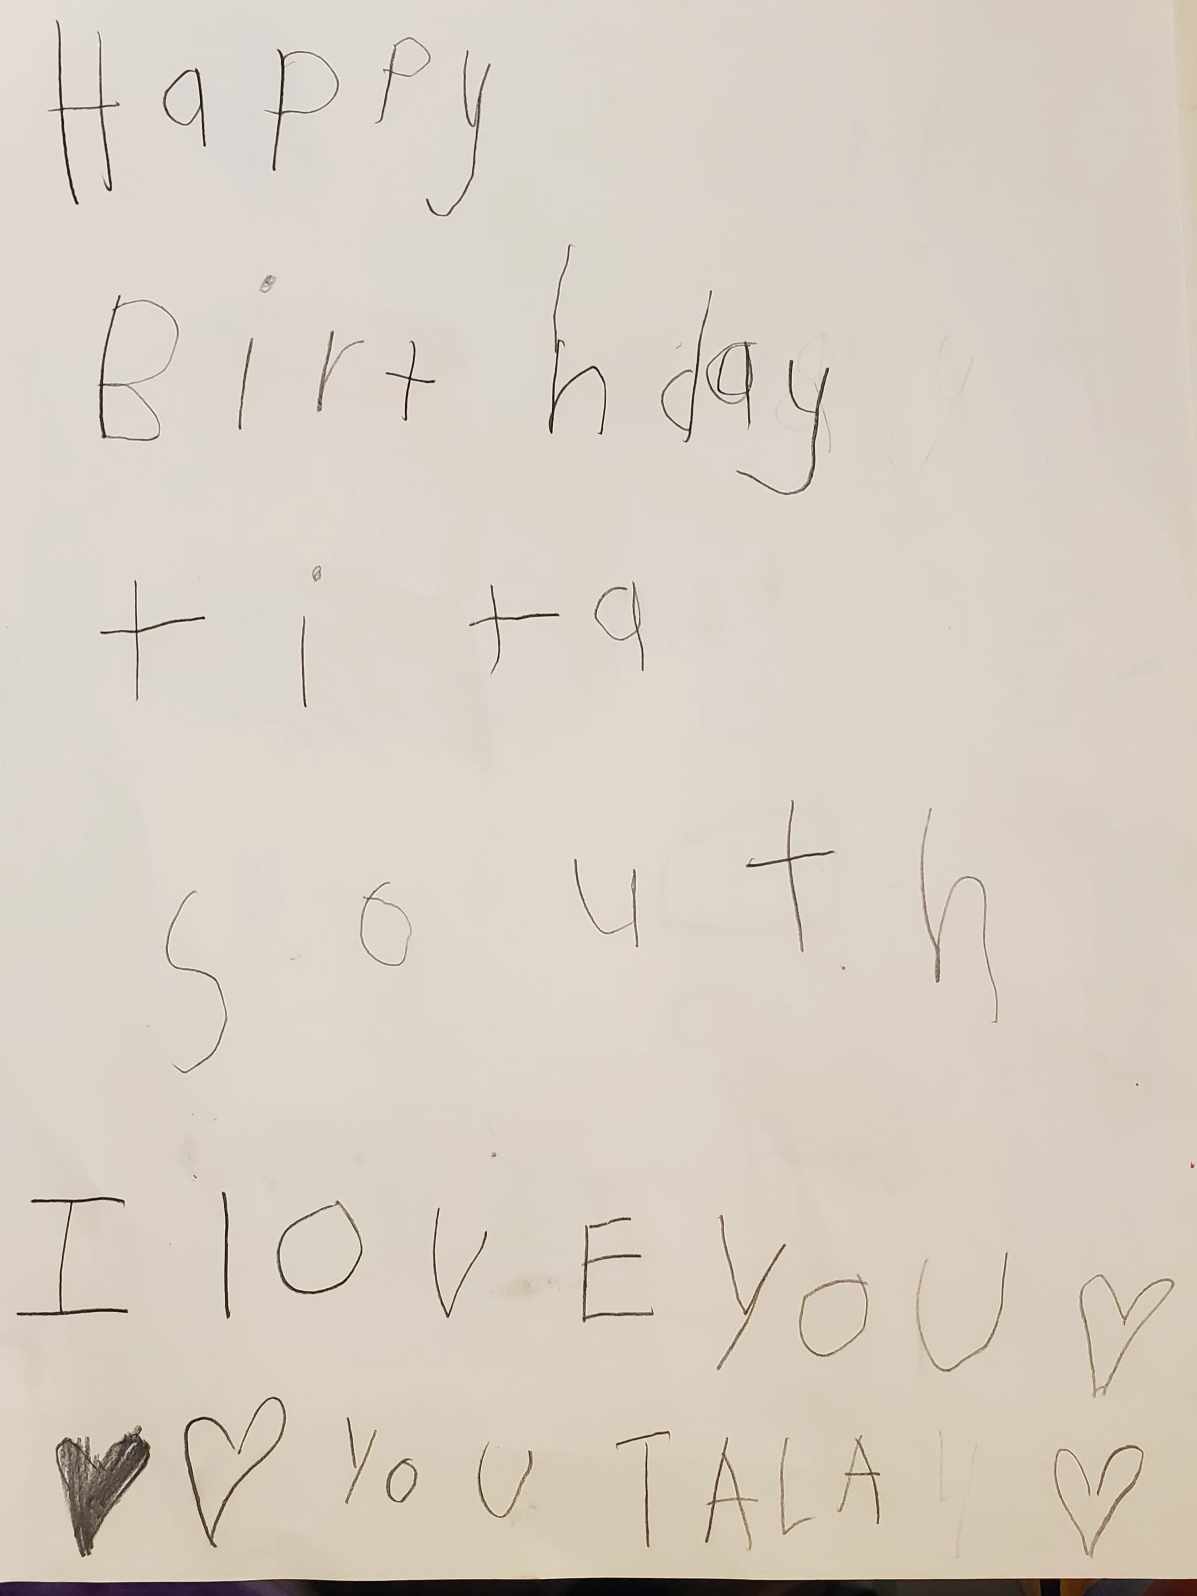 Happy
Birthday
tita
south
I lOVE YOU ♡
♥ ♡ YOU TALA ♡